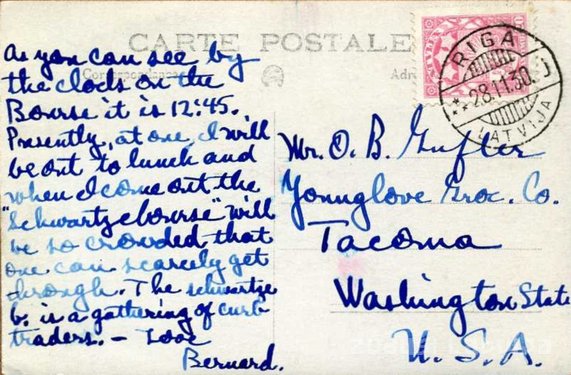 CARTE POSTALE
Correspondance
Adr
RIGA
28.11.30
LATVIJA
As you can see by
the clock on the
Bourse it is 12:45.
Presently, at one, I will
be out to lunch and
when I come out the
"schwartze bourse" will
be so crowded that
one can scarcely get
through. The schwartze
b. is a gathering of curb
traders. — Love
Bernard.
Mr. O. B. Gufler
Younglove Groc. Co.
Tacoma
Washington State
U. S. A.